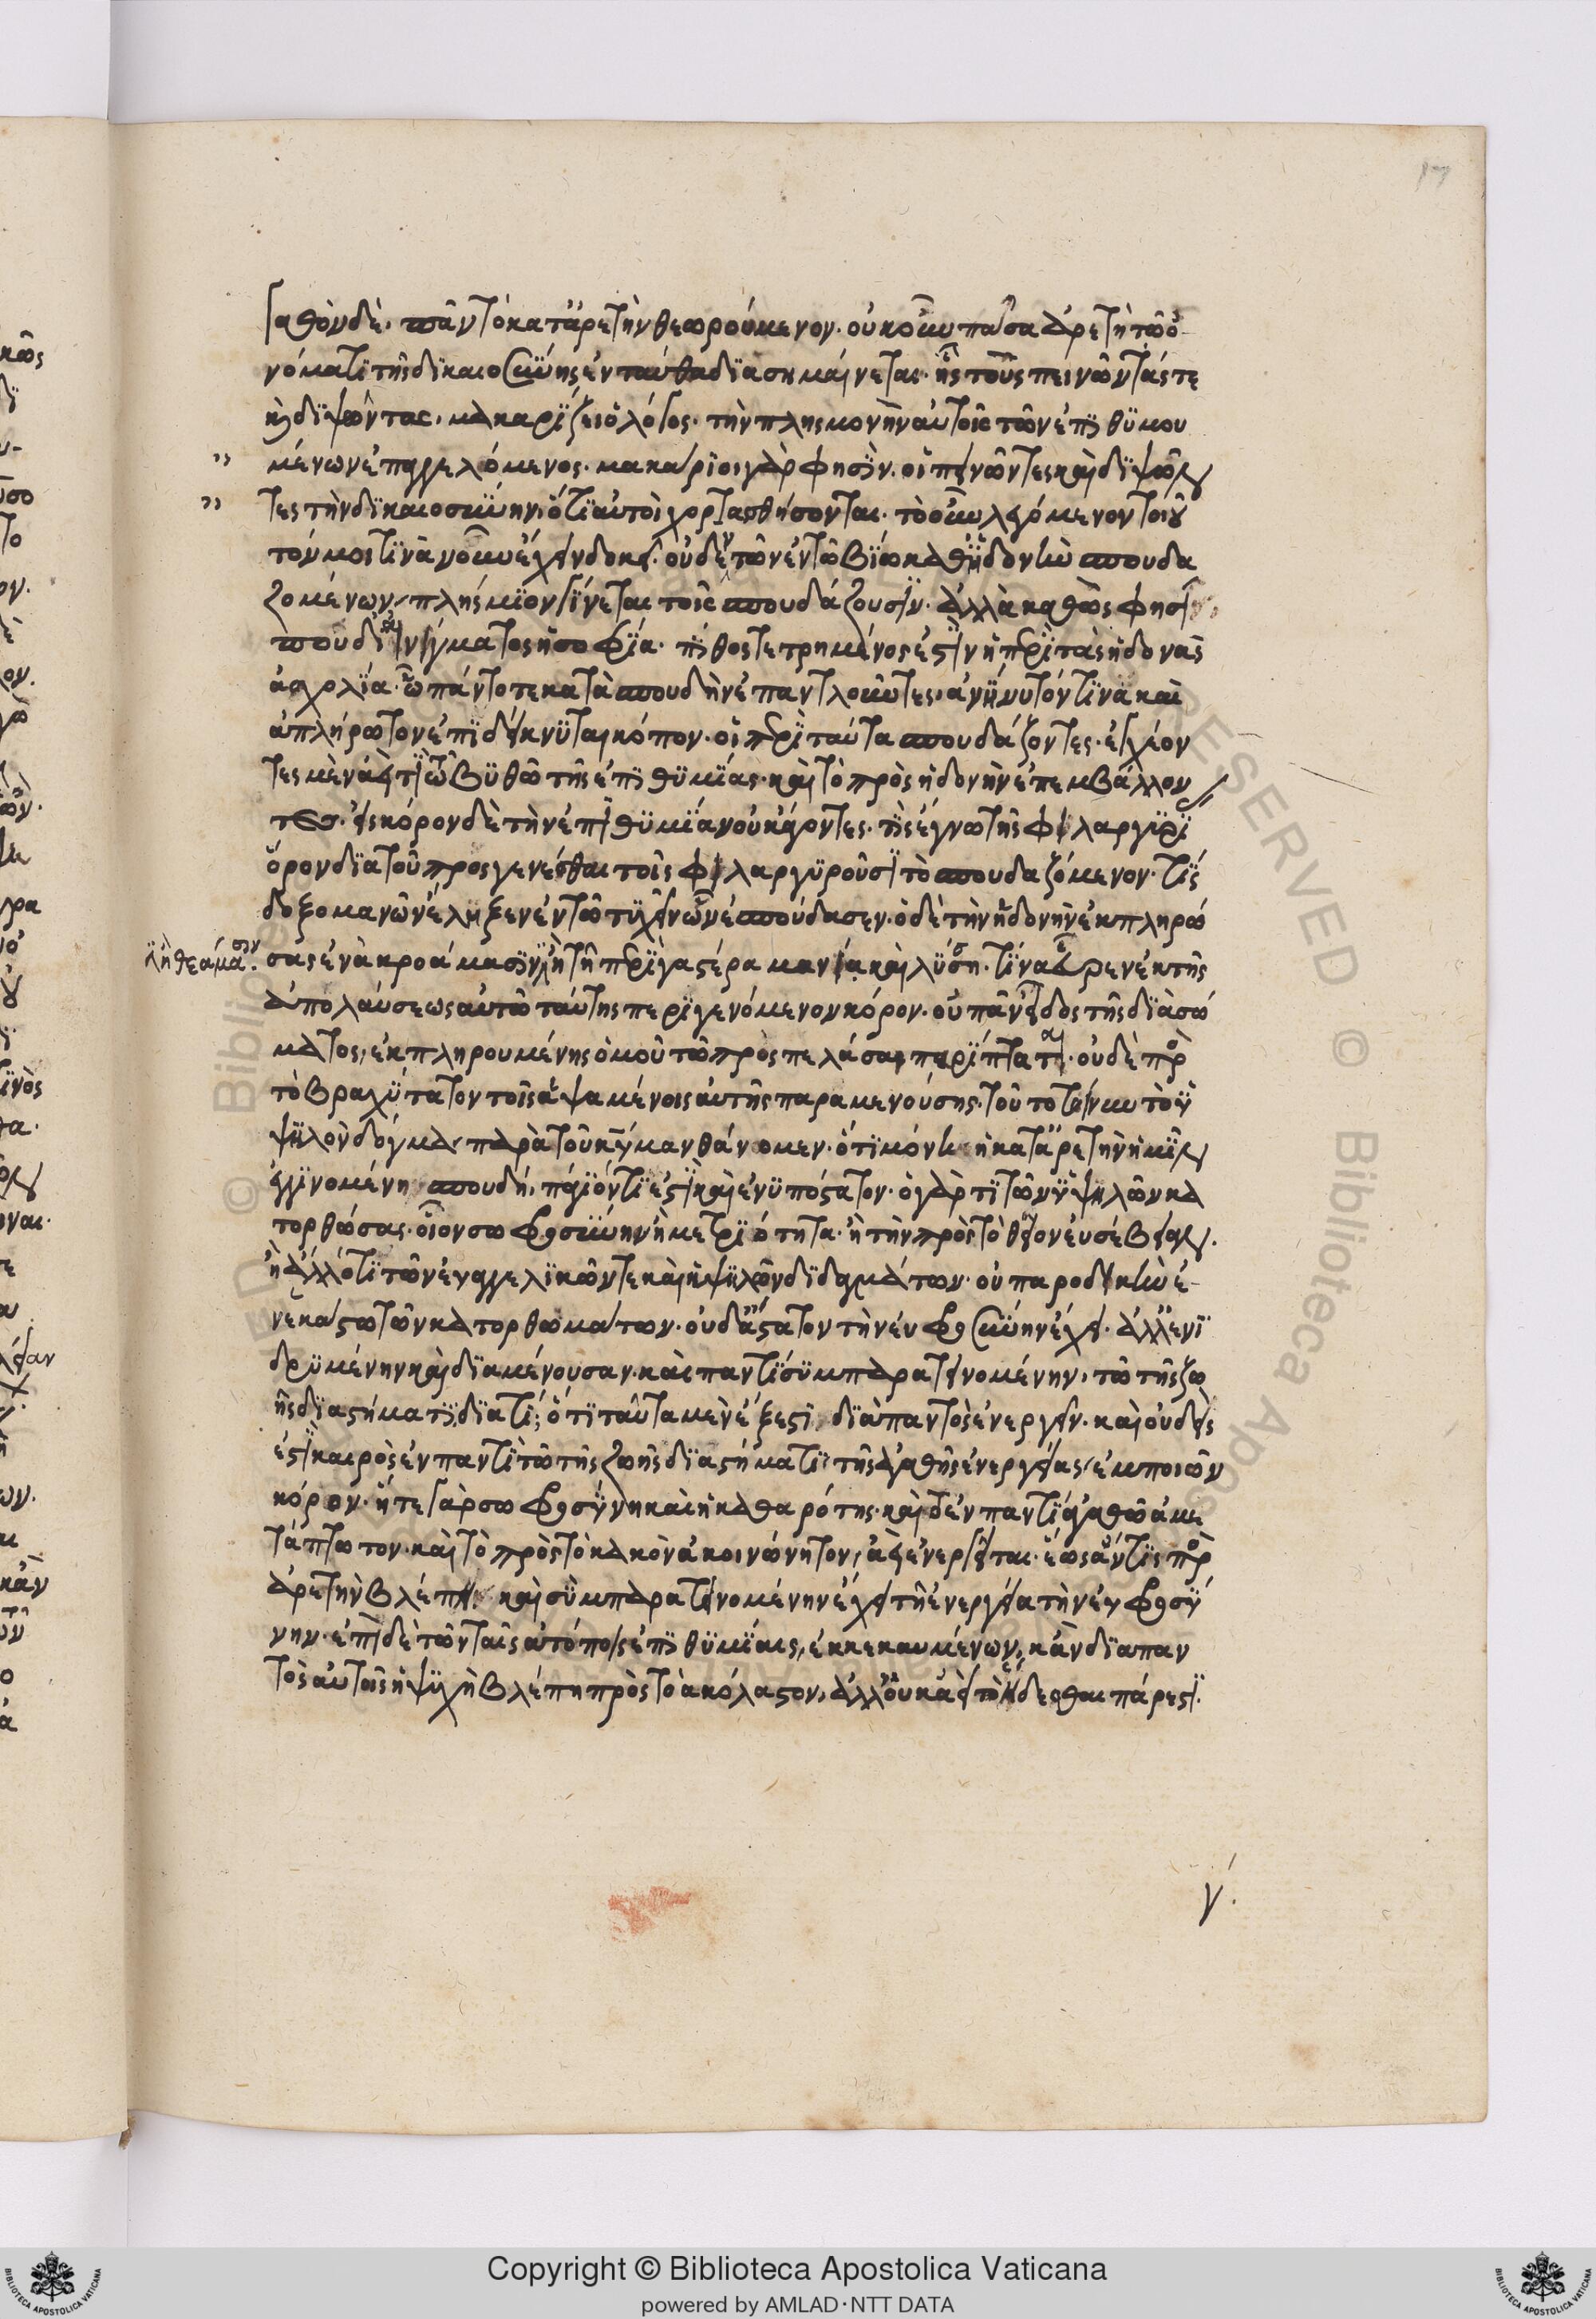 γαθὸν δὲ, πᾶν τὸ κατ' ἀρετὴν θεωρούμενον. οὐκοῦν πᾶσα ἀρετὴ τῶ ὀ
νόματι τῆς δικαιοσύνης ἐνταῦθα διασημαίνεται. ἧς τοὺς πεινῶντάς τε
καὶ διψῶντας, μακαρίζει ὁ λόγος. τὴν πλησμονὴν αὐτοῖς τῶν ἐπιθυμου
μένων ἐπαγγελόμενος. μακάριοι γὰρ φησὶν. οἱ πεινῶντες καὶ διψῶν
τες τὴν δικαιοσύνην, ὅτι αὐτοὶ χορτασθήσονται. τὸ οὖν λεγόμενον τοιοῦ
τόν μοι τινὰ νοῦν ἔχειν δοκεῖ. οὐδὲν τῶν ἐν τῶ βίω καθ' ἡδονὴν σπουδα
ζομένων, πλήσμιον γίνεται τοῖς σπουδάζουσιν. ἀλλὰ καθώς φησι
που δι' αἰνίγματος ἡ σοφία. πίθος τετρημένος ἐστὶν ἡ περὶ τὰς ἡδονὰς
ἀσχολία. ὧ πάντοτε κατὰ σπουδὴν ἐπαντλοῦντες, ἀνήνυτόν τινα καὶ
ἀπλήρωτον ἐπιδείκνυται κόπον. οἱ περὶ ταῦτα σπουδάζοντες. ἐγχέον
τες μὲν ἀεί τι τῶ βυθῶ τῆς ἐπιθυμίας. καὶ τὸ πρὸς ἡδονὴν ἐπεμβάλλον
τες. εἰς κόρον δὲ τὴν ἐπιθυμίαν οὐκ ἄγοντες. τίς ἔγνω τῆς φιλαργυρί
ὅρον διὰ τοῦ προσγενέσθαι τοῖς φιλαργυροῦσι τὸ σπουδαζόμενον. τίς
δοξομανῶν ἔληξεν ἐν τῶ τυχεῖν ὧν ἐσπούδασεν. ὁ δὲ τὴν ἡδονὴν ἐκπληρώ
σας ἐν ἀκροάμασιν, ἢ τῆ περὶ γαστέρα μανία καὶ λύσση. τίνα εὗρεν ἐκ τῆς
ἢ θεάμασιν.
ἀπολαύσεως αὐτῶ ταύτης περιγενόμενον κόρον. οὐ πᾶν εἶδος τῆς διὰ σώ
ματος, ἐκπληρουμένης ὁμοῦ τῶ προσπελάσαι παρίπταται. οὐδὲ πρὸς
τὸ βραχύτατον τοῖς ἁψαμένοις αὐτῆς παραμενούσης. τοῦτο τοίνυν τὸ ὑ
ψηλὸν δόγμα, παρὰ τοῦ κυ μανθάνομεν. ὅτι μόνη ἡ κατ' ἀρετὴν ἡμῖν
ἐγγινομένη σπουδή, πάγιόν τί ἐστι καὶ ἐνυπόστατον. ὁ γὰρ τι τῶν ὑψηλῶν κα
τορθώσας. οἷον σωφροσύνην ἢ μετριότητα. ἢ τὴν πρὸς τὸ θεῖον εὐσέβειαν.
ἢ ἄλλό τι τῶν εὐαγγελικῶν τε καὶ ὑψηλῶν διδαγμάτων. οὐ παροδικὴν ἐ-
νεκάστω τῶν κατορθωμάτων. οὐδ' ἄστατον τὴν εὐφροσύνην ἔχει. ἀλλ' ἐνι
δρυμένην καὶ διαμένουσαν. καὶ παντί συμπαρατεινομένην, τῶ τῆς ζω
ῆς διαστήματι. διατί; ὅτι ταῦτα μὲν ἔξεστι, διὰ παντὸς ἐνεργεῖν. καὶ οὐδεὶς
ἐστι καιρὸς ἐν παντὶ τῶ τῆς ζωῆς διαστήματι. τῆς ἀγαθῆς ἐνεργείας, ἐμποιῶν
κόρον. ἥ τε γὰρ σωφροσύνη καὶ ἡ καθαρότης. καὶ τὸ ἐν παντὶ ἀγαθῶ ἀμε
τάπτωτον. καὶ τὸ πρὸς τὸ κακὸν ἀκοινώνητον, ἀεὶ ἐνεργεῖται. ἕως ἄν τις πρὸς
ἀρετὴν βλέπει. καὶ συμπαρατεινομένην ἔχει τῆ ἐνεργεία τὴν εὐφροσύ
νην. ἐπὶ δὲ τῶν ταῖς ἀτόποις ἐπιθυμίαις, ἐκκεκαυμένων, κἂν διαπαν
τὸς αὐτοῖς ἡ ψυχὴ βλέπη πρὸς τὸ ἀκόλαστον, ἀλλ' οὐκ ἀεὶ τὸ ἥδεσθαι πάρεστι.
γ.
Copyright © Biblioteca Apostolica Vaticana
powered by AMLAD·NTT DATA